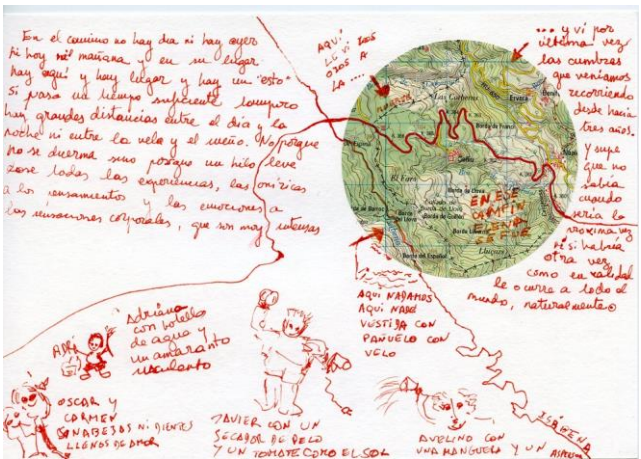 En el camino no hay día ni hay ayer
ni hoy ni mañana y en su lugar
hay aquí y hay lugar y hay un "esto"
Si pasa un tiempo suficiente tampoco
hay grandes distancias entre el día y la
noche ni entre la vela y el sueño. No porque
no se duerma sino porque un hilo leve
cose todas las experiencias, las oníricas
a los pensamientos y las emociones a
las sensaciones corporales, que son muy intensas
AQUÍ
LE VI LOS
OJOS A
LA ....
... y vi por
última vez
las cumbres
que veníamos
recorriendo
desde hacía
tres años.
y supe
que no
sabía
cuando
sería la
próxima vez
ni si habría
otra vez
como en realidad
le ocurre a todo el
mundo, naturalmente
Las Colleras
Borda de Franci
El Faro
Borda de Llosa
EN ESE
Lluquet
Borda del Español
AQUÍ NADAMOS
AQUÍ NADÉ
VESTIDA CON
PAÑUELO CON
VELO
ISÁBENA
ADRI
Adriana
con botella
de agua y
un amaranto
OSCAR Y
CARMEN
LLENOS DE AMOR
JAVIER CON UN
SECADOR DE PELO
Y UN TOMATE COMO EL SOL
AVELINO CON
UNA MANGUERA Y UN